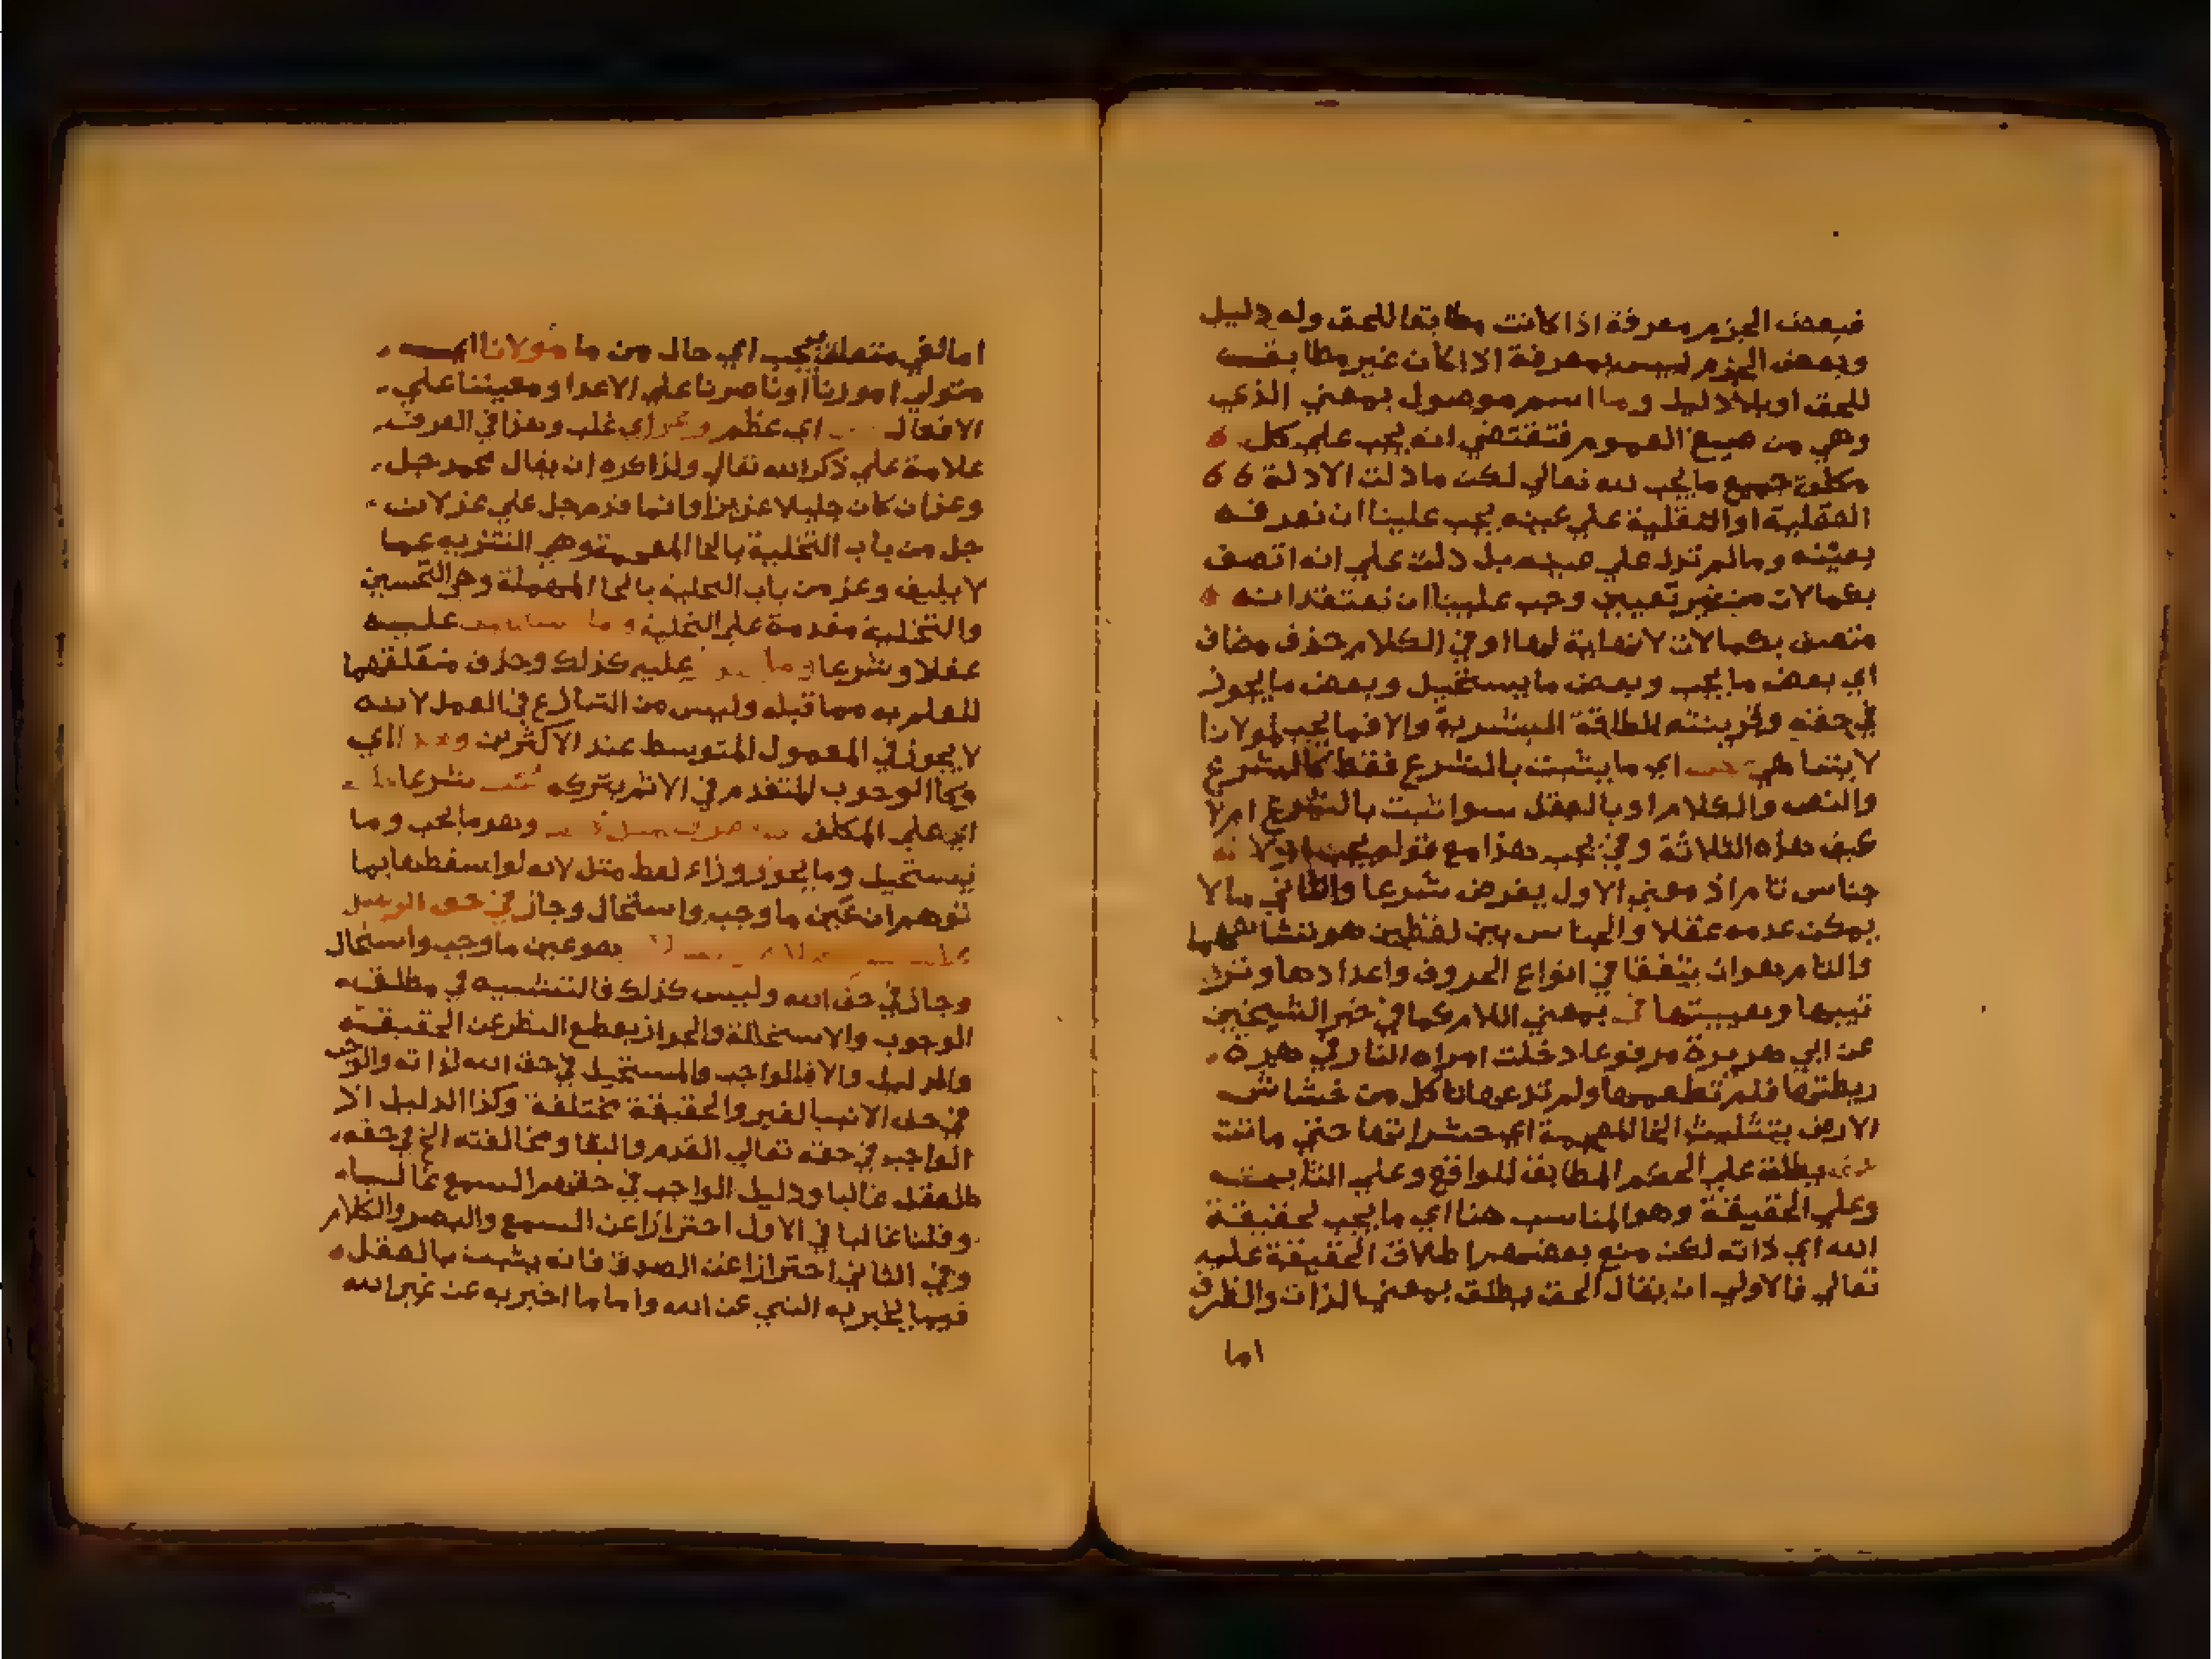 فبعض الجزم معرفة اذا كانت مطابقا للحق وله دليل
وبعض الجزم ليس بمعرفة اذا كان غير مطابق
للحق او بلا دليل وما اسم موصول بمعني الذي
وهي من صيغ العموم فتقتضي انه يجب علي كل
مكلف جميع ما يجب لله تعالي لكن ما دلت الادلة
العقلية او النقلية علي عينه يجب علينا ان نعرفه
بعينه وما لم تدل علي عينه بل دلت علي انه اتصف
بكمالات من غير تعيين وجب علينا ان نعتقد انه
متصف بكمالات لا نهاية لها او في الكلام حذف مضاف
اي بعض ما يجب وبعض ما يستحيل وبعض ما يجوز
في حقه وقرينته الطاقة البشرية والا فما يجب لمولانا
لا يتناهي اي ما يثبت بالشرع فقط كالشرع
والنص والكلام او بالعقل سوا ثبت بالشرع ام لا
عين هذه الثلاثة وفي يجب هذا مع قوله يجب اولا
جناس تام اذ معني الاول يفرض شرعا والثاني ما لا
يمكن عدمه عقلا والجناس بين لفظين هو تشابههما
والتام هو ان يتفقا في انواع الحروف واعدادها وتر
تيبها وهيئتها في بمعني اللام كما في خبر الشيخين
عن ابي هريرة مرفوعا دخلت امراه النار في هرة
ربطتها فلم تطعمها ولم تدعها تاكل من خشاش
الارض بتثليث الخا المعجمة اي حشراتها حتي ماتت
يطلق علي الحكم المطابق للواقع وعلي الثابت
وعلي الحقيقة وهو المناسب هنا اي ما يجب لحقيقة
الله اي ذاته لكن منع بعضهم اطلاق الحقيقة عليه
تعالي فالاولي ان يقال الحق يطلق بمعني الذات والظرف
اما
اما لغو متعلق بيجب اي حال من ما مولانا اي
متولي امورنا او ناصرنا علي الاعدا ومعيننا علي
الافعال اي عظم وعز اي غلب وهذا في العرف
علامة علي ذكر الله تعالي ولذا كره ان يقال محمد جل
وعز ان كان جليلا عزيزا وانما قدم جل علي عز لان
جل من باب التخلية بالخا المعجمة وهي التنزيه عما
لا يليق وعز من باب التحلية بالحا المهملة وهي التحسين
والتخلية مقدمة علي التحلية وما عليه
عقلا وشرعا وما عليه كذلك وحذف متعلقهما
للعلم به مما قبله وليس من التنازع في العمل لانه
لا يجوز في المعمول المتوسط عند الاكثرين اي
وكا الوجوب المتقدم في الاثم بتركه شرعا
اي علي المكلف وهو ما يجب وما
يستحيل وما يجوز وزاد لفظ مثل لانه لو اسقطها بما
توهم ان عين ما وجب واستحال وجاز في حق الرسل
هو عين ما وجب واستحال
وجاز في حق الله وليس كذلك فالتشبيه في مطلق
الوجوب والاستحالة والجواز بقطع النظر عن الحقيقة
والدليل والا فالواجب والمستحيل في حق الله لذاته والواجب
في حق الانبيا لغير والحقيقة مختلفة وكذا الدليل اذ
الواجب في حقه تعالي القدم والبقا ومخالفته الخ في حقه
بالعقل غالبا ودليل الواجب في حقهم السمع غالبا
وقلنا غالبا في الاول احترازا عن السمع والبصر والكلام
وفي الثاني احترازا عن الصدق فانه يثبت بالعقل
فيما يخبر به النبي عن الله واما ما اخبر به عن غير الله